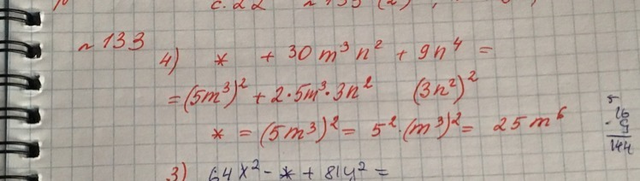 с. 22 № 133 (2)
№ 133
4) * + 30 m³n² + 9n⁴ =
= (5m³)² + 2·5m³·3n² (3n²)²
* = (5m³)² = 5²·(m³)² = 25m⁶
16
9
144
3) 64x² - * + 81y² =